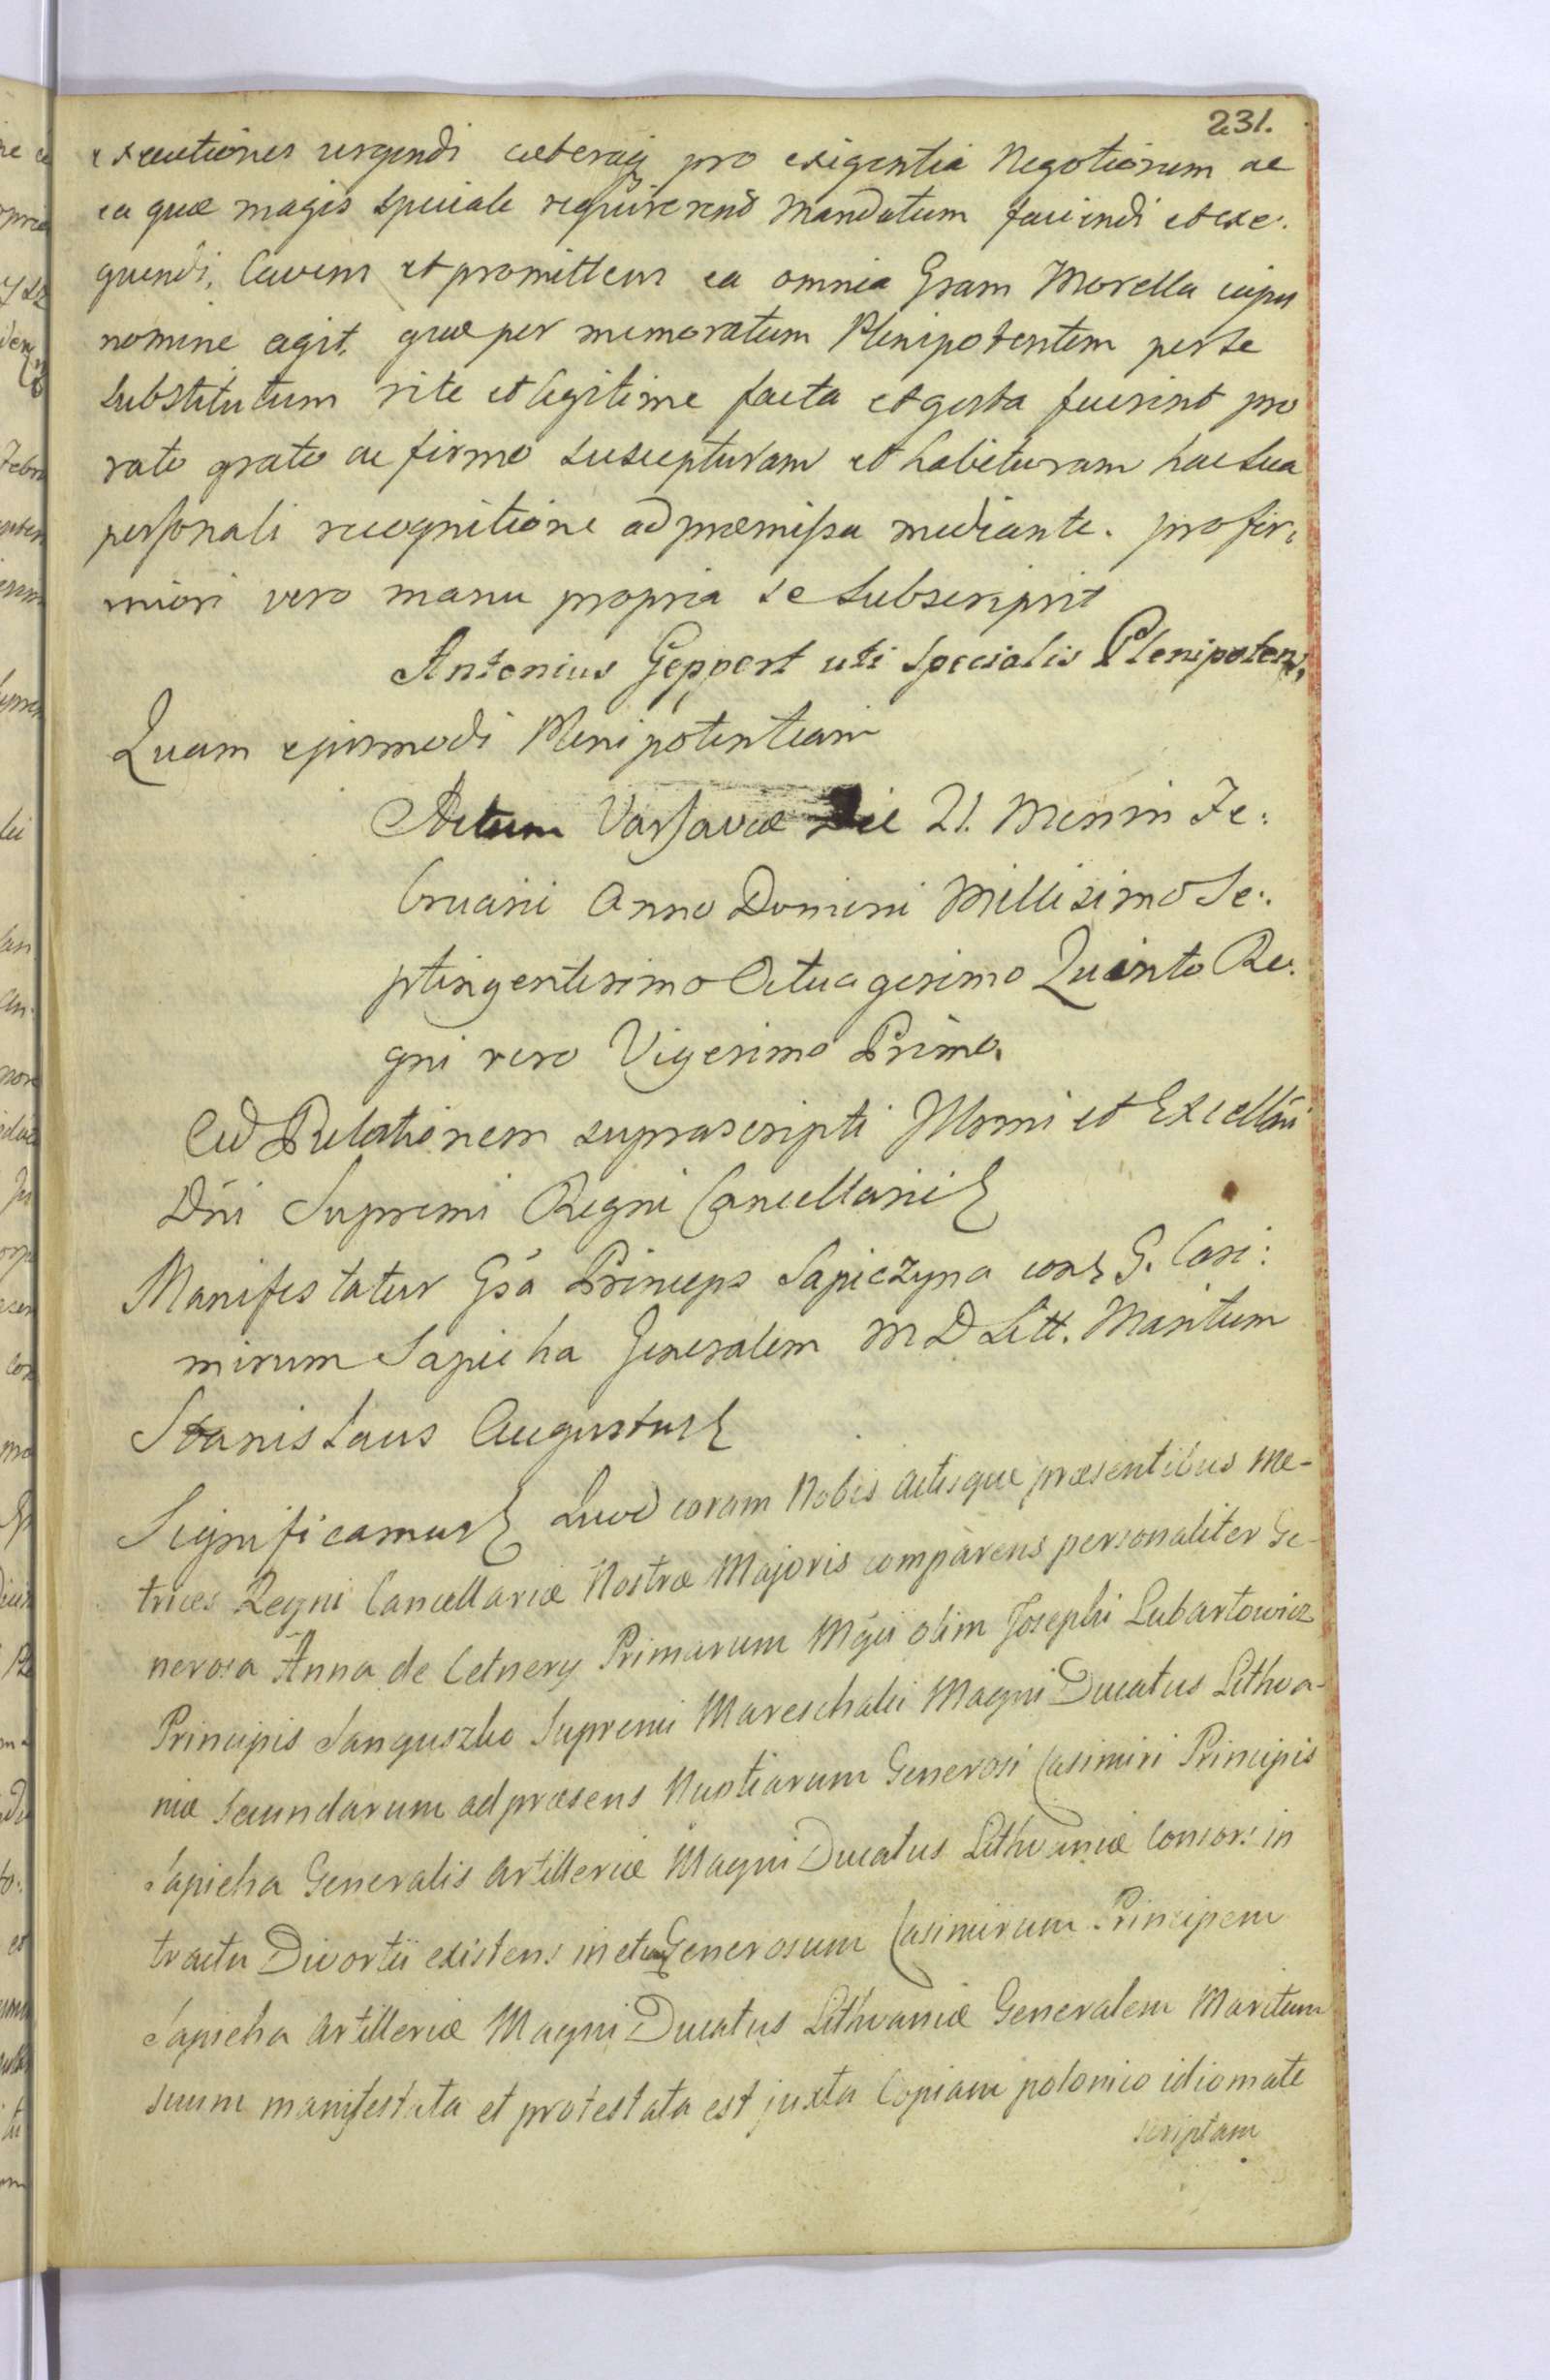 231.
executiones urgendi caeteraq pro exigentia Negotiorum ac
ea quæ magis speciale requirerent Mandatum faciendi et exe:
quendi, Cavens et promittens ea omnia Gsam Morella cujus
nomine agit, quæ per memoratum Plenipotentem per se
substitutum rite et legitime facta et gesta fuerint pro
rato grato ac firmo suscepturam et habituram hac sua
personali recognitione ad præmissa mediante. pro fir:
miori vero manu propria se subscripsit
Antonius Geppert uti specialis Plenipotens,
Quam ejusmodi Plenipotentiam
Actum Varsaviæ Die 21. Mensis Fe:
bruarii Anno Domini Millesimo Se:
ptingentesimo Octuagesimo Quinto Re:
gni vero Vigesimo Primo.
Ad Relationem suprascripti Illmi et Excellmi
Dni Supremi Regni Cancellarii
Manifestatur Gsa Princeps Sapieżyna con G. Casi:
mirum Sapieha Generalem M D Litt. Maritum
Stanislaus Augustus
Significamus Quod coram Nobis Actisque præsentibus Me-
trices Regni Cancellariæ Nostræ Majoris comparens personaliter Ge-
nerosa Anna de Cetnery Primarum Mgci olim Josephi Lubartowicz
Principis Sanguszko Supremi Mareschalci Magni Ducatus Lithva-
niæ Secundarum ad præsens Nuptiarum Generosi Casimiri Principis
Sapieha Generalis Artilleriæ Magni Ducatus Lithvaniæ Consors in
tractu Divortii existens in et Generosum Casimirum Principem
Sapieha Artilleriæ Magni Ducatus Lithvaniæ Generalem Maritum
suum manifestata et protestata est juxta Copiam polonico idiomate
scriptam